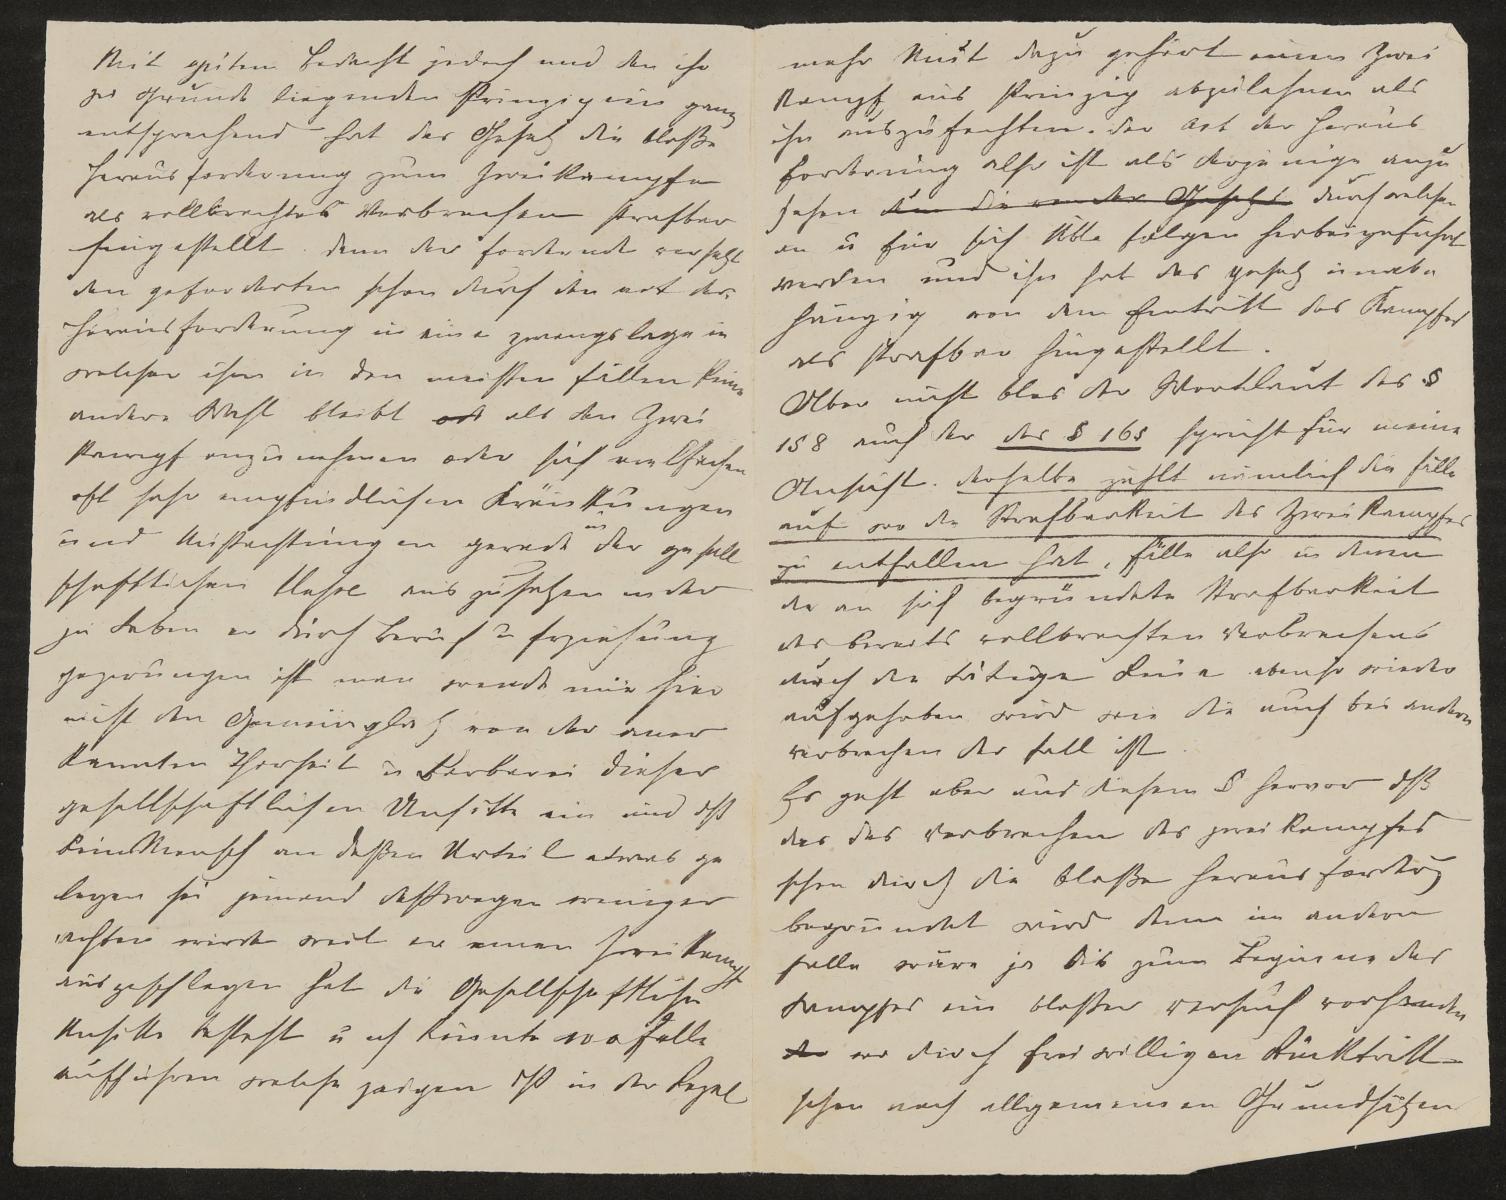 Mit guten Bedacht jedoch und den ihr
zu Grunde liegenden Prinzipien ganz
entsprechend hat das Gesetz die bloße
Herausforderung zum Zweikampfe
als vollbrachtes Verbrechen strafbar
hingestellt denn der fordernde versetzt
den geforderten schon durch den act der
Herausforderung in eine zwangslage in
welcher ihm in den meisten fällen keine
andere Wahl bleibt als den Zwei
kampf anzunehmen oder sich vielfachen
oft sehr empfindlichen Kränkungen
und Mißachtungen gerade in der gesell
schaftlichen auszusetzen in der
zu Leben er durch Beruf u Erziehung
gezwungen ist man wende mir hier
nicht den Gemeinplatz von der aner
kannten Thorheit u Barberei dieser
gesellschaftlichen Unsitte ein und dß
kein Mensch an deßen Urteil etwas ge
legen sei jemand deßwegen weniger
achten wird weil er einen Zweikampf
ausgeschlagen hat die Gesellschaftliche
Unsitte besteht u ich könnte 100 fälle
aufführen welche zeigen dß in der Regel
mehr Mut dazu gehört einen Zwei
kampf aus Prinzip abzulehnen als
ihn auszufechten. der Act der Heraus
forderung also ist als derjenige anzu
sehen durch welchen
an u für sich üble folgen herbeigeführt
werden und ihn hat das gesetz unab
hängig von dem Eintritt des Kampfes
als strafbar hingestellt.
Aber nicht blos der Wortlaut des §
158 auch der des § 165 spricht für meine
Ansicht. derselbe zählt nämlich die fälle
auf wo die Strafbarkeit des Zweikampfes
zu entfallen hat, fälle also in denen
die an sich begründete Strafbarkeit
des bereits vollbrachten Verbrechens
durch die tätige Reue ebenso wieder
aufgehoben wird wie die auch bei andern
verbrechen der fall ist.
Es geht aber aus diesem § hervor dß
das das Verbrechen des zweikampfes
schon durch die bloße Herausforderung
begründet wird denn im andern
falle wäre ja bis zum Beginne des
Kampfes ein bloßer versuch vorhanden
wo durch freiwilligen Rücktritt
schon nach allgemeinen Grundsätzen